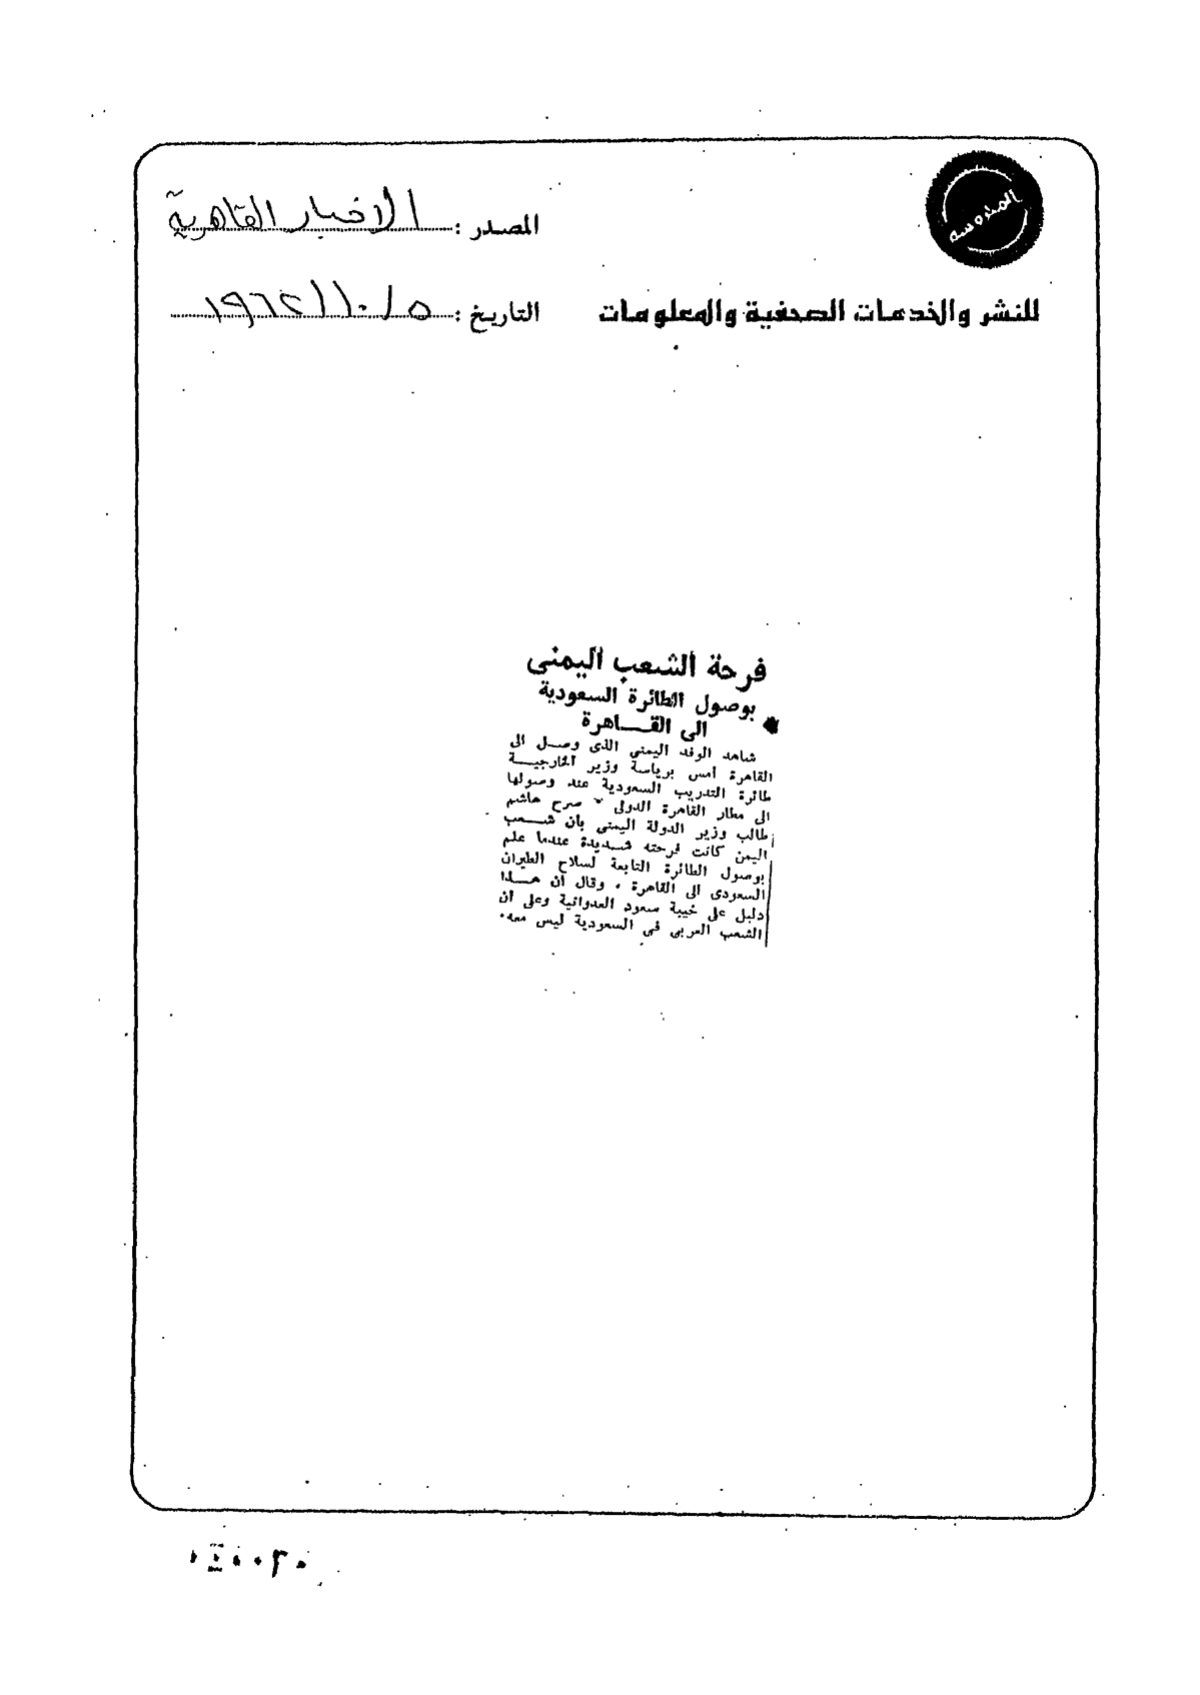 المحروسة
المصدر : الاخبار القاهرية
للنشر والخدمات الصحفية والمعلومات
التاريخ : ٥ / ١٠ / ١٩٦٢
فرحة الشعب اليمنى
بوصول الطائرة السعودية
الى القـــاهرة
شاهد الوفد اليمنى الذى وصــل الى
القاهرة أمس برياسة وزير الخارجيــة
طائرة التدريب السعودية عند وصولها
الى مطار القاهرة الدولى . صرح هاشم
طالب وزير الدولة اليمنى بأن شــعب
اليمن كانت فرحته شــديدة عندما علم
بوصول الطائرة التابعة لسلاح الطيران
السعودى الى القاهرة . وقال ان هــذا
دليل على خيبة سعود العدوانية وعلى أن
الشعب العربى فى السعودية ليس معه.